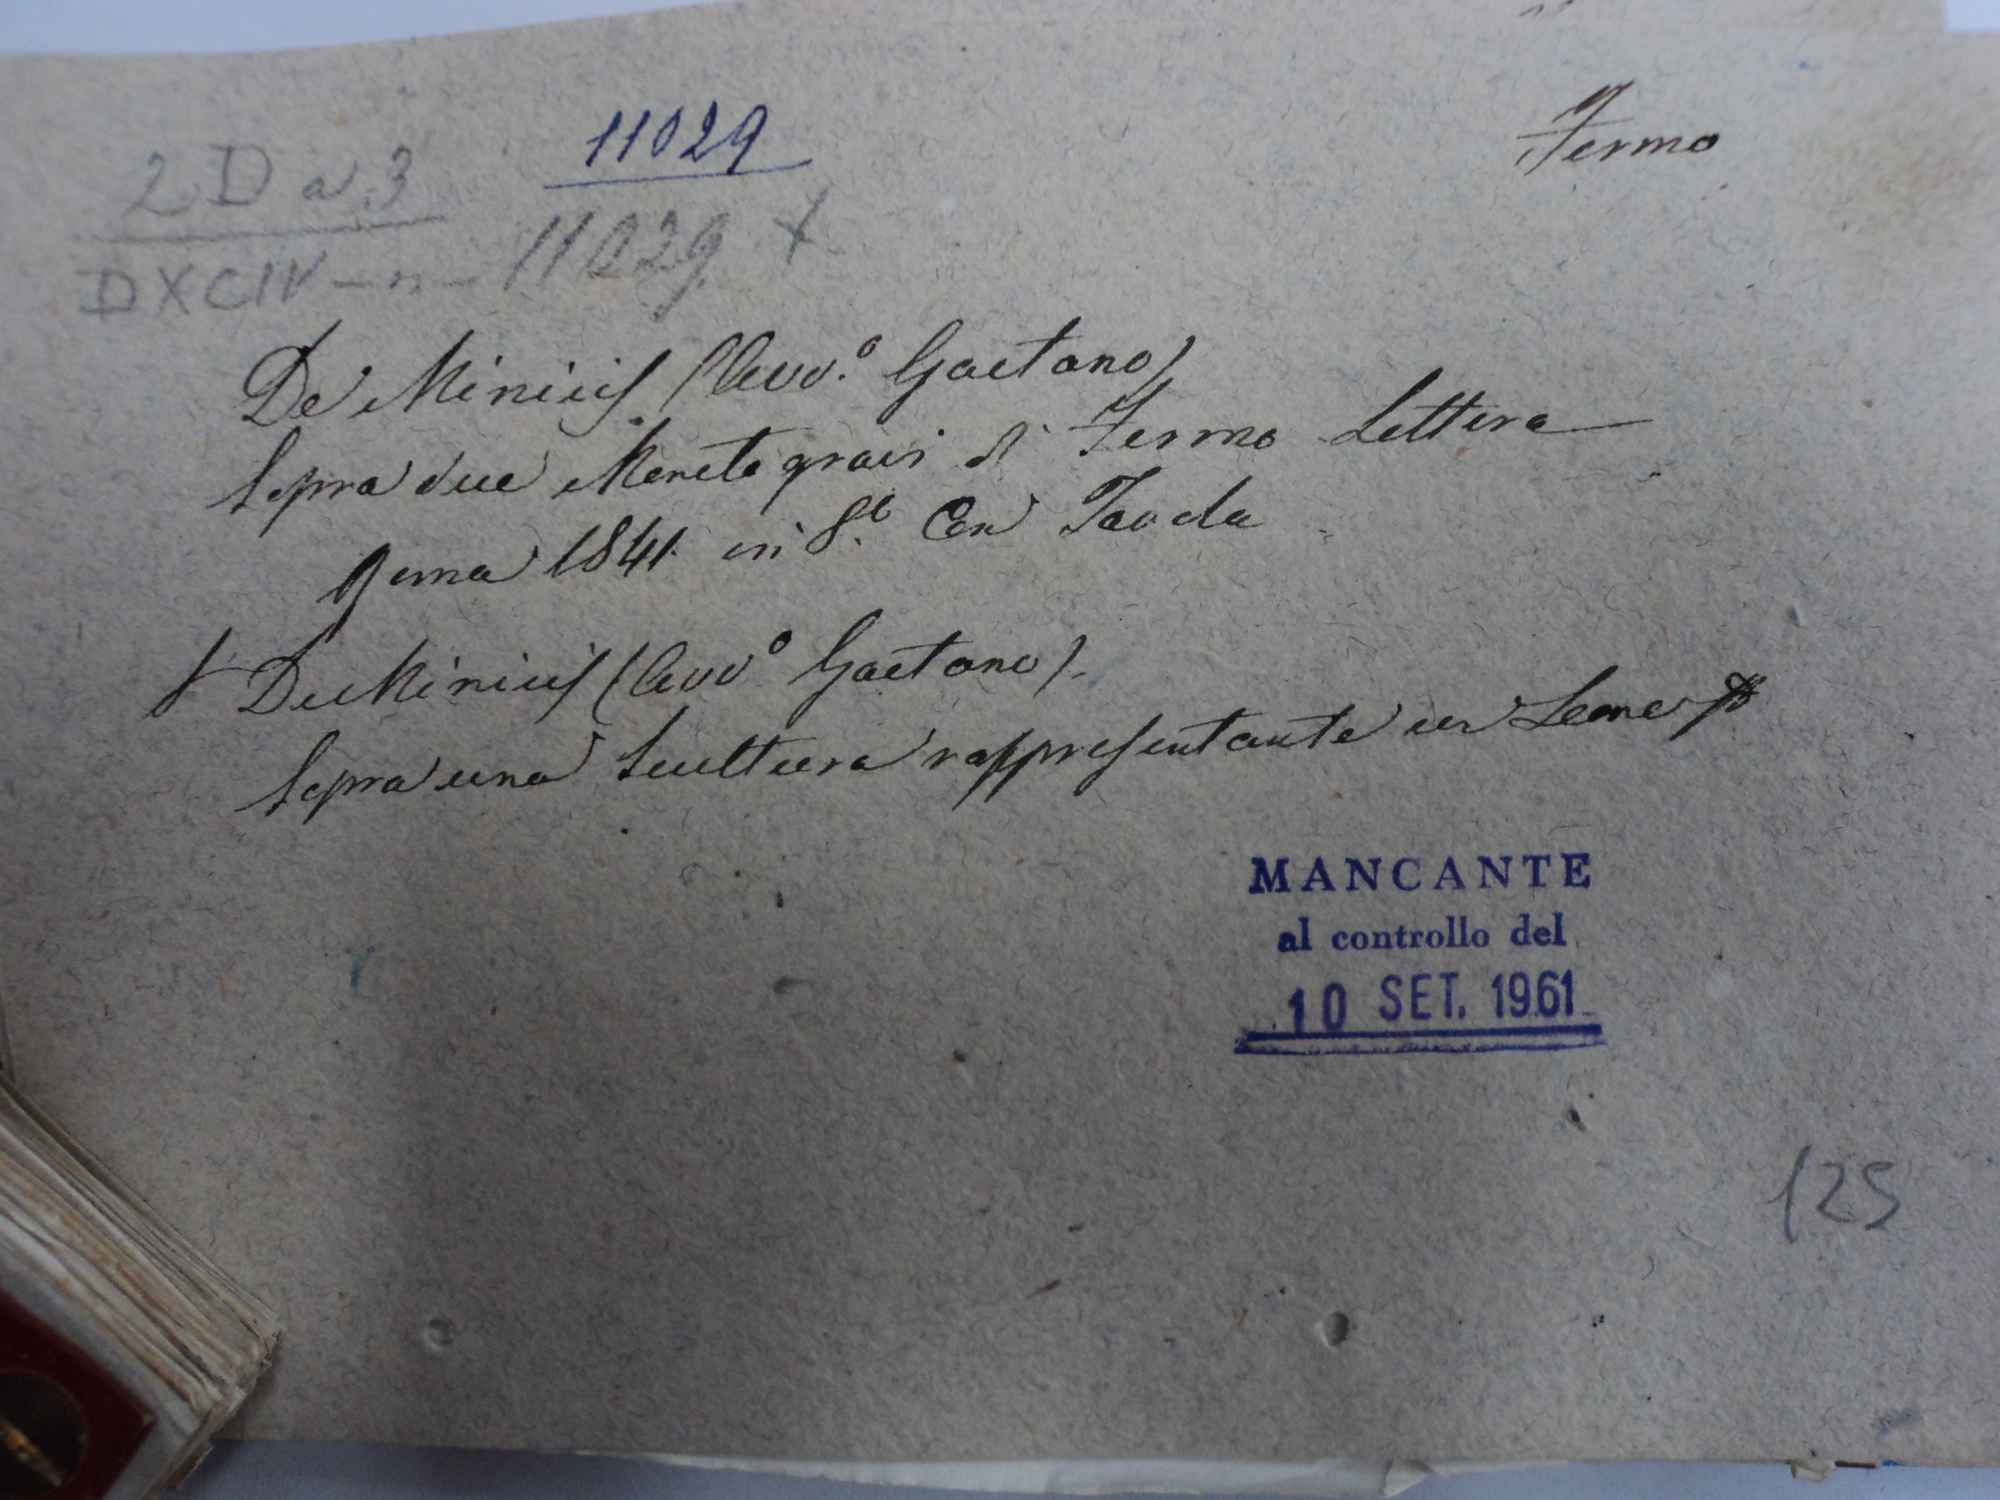 Fermo
11029
2 D a 3
DXCIV - n - 11029. +
De Minicis (Avv.o Gaetano)
Sopra due Monete gravi di Fermo Lettera
Roma 1841. in 8.o Con Tavola
De Minicis (Avv.o Gaetano).
Sopra una Scultura rappresentante un Leone
MANCANTE
al controllo del
10 SET. 1961
125